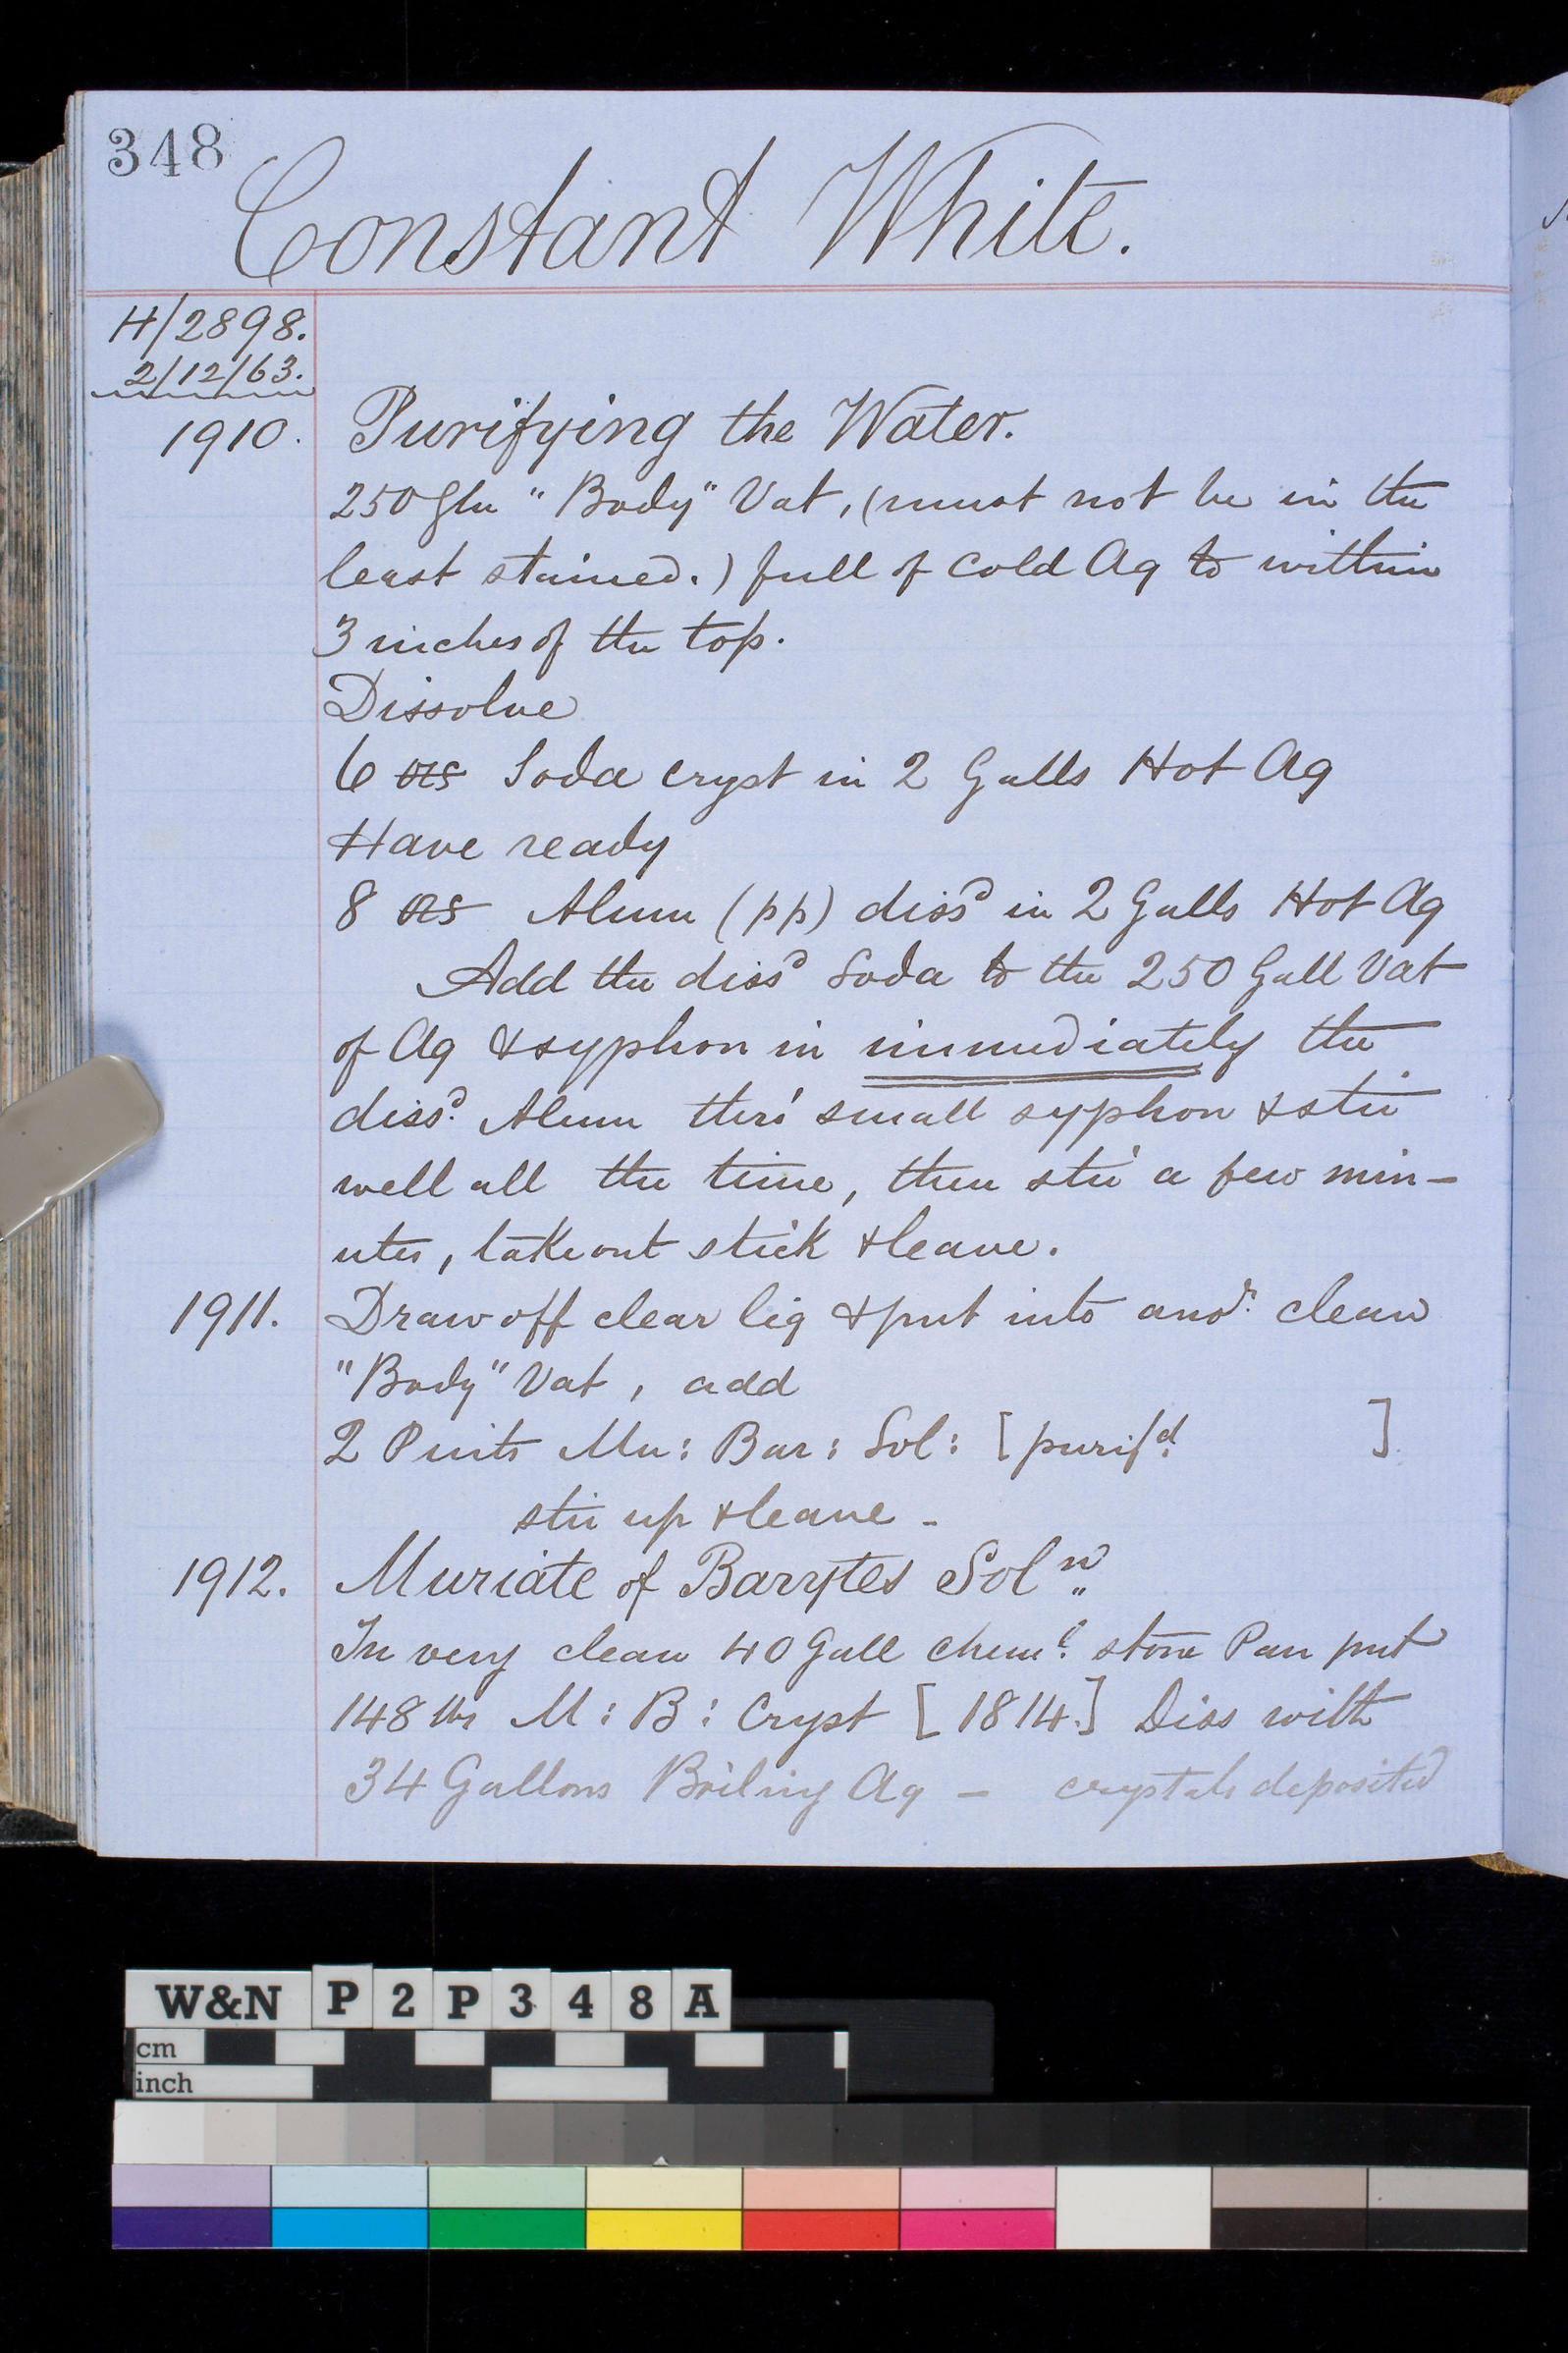 348
Constant White.
H/2898.
2/12/63.
1910. Purifying the Water.
250 Gln "Body" Vat, (must not be in the
least stained.) full of cold Aq to within
3 inches of the top.
Dissolve
6 ozs Soda cryst in 2 Galls Hot Aq
Have ready
8 ozs Alum (pp) dissd in 2 Galls Hot Aq
Add the dissd Soda to the 250 Gall Vat
of Aq & syphon in immediately the
dissd. Alum thro' small syphon & stir
well all the time, then stir a few min-
utes, take out stick & leave.
1911. Draw off clear liq & put into anor. clean
"Body" Vat, add
2 Pints Mu: Bar: Sol: [purifd. ]
stir up & leave -
1912. Muriate of Barytes Soln
In very clean 40 Gall cheml. stone Pan put
148 lbs M: B: Cryst [1814.] Diss with
34 Gallons Boiling Aq - crystals deposited
W&N P2P348A
cm
inch